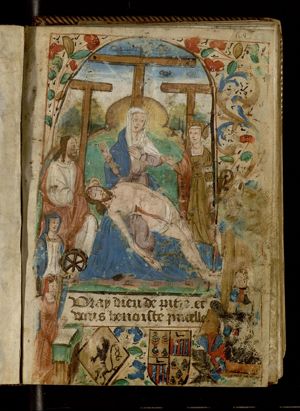 Vray dieu de pitie et
vous benoiste pucelle